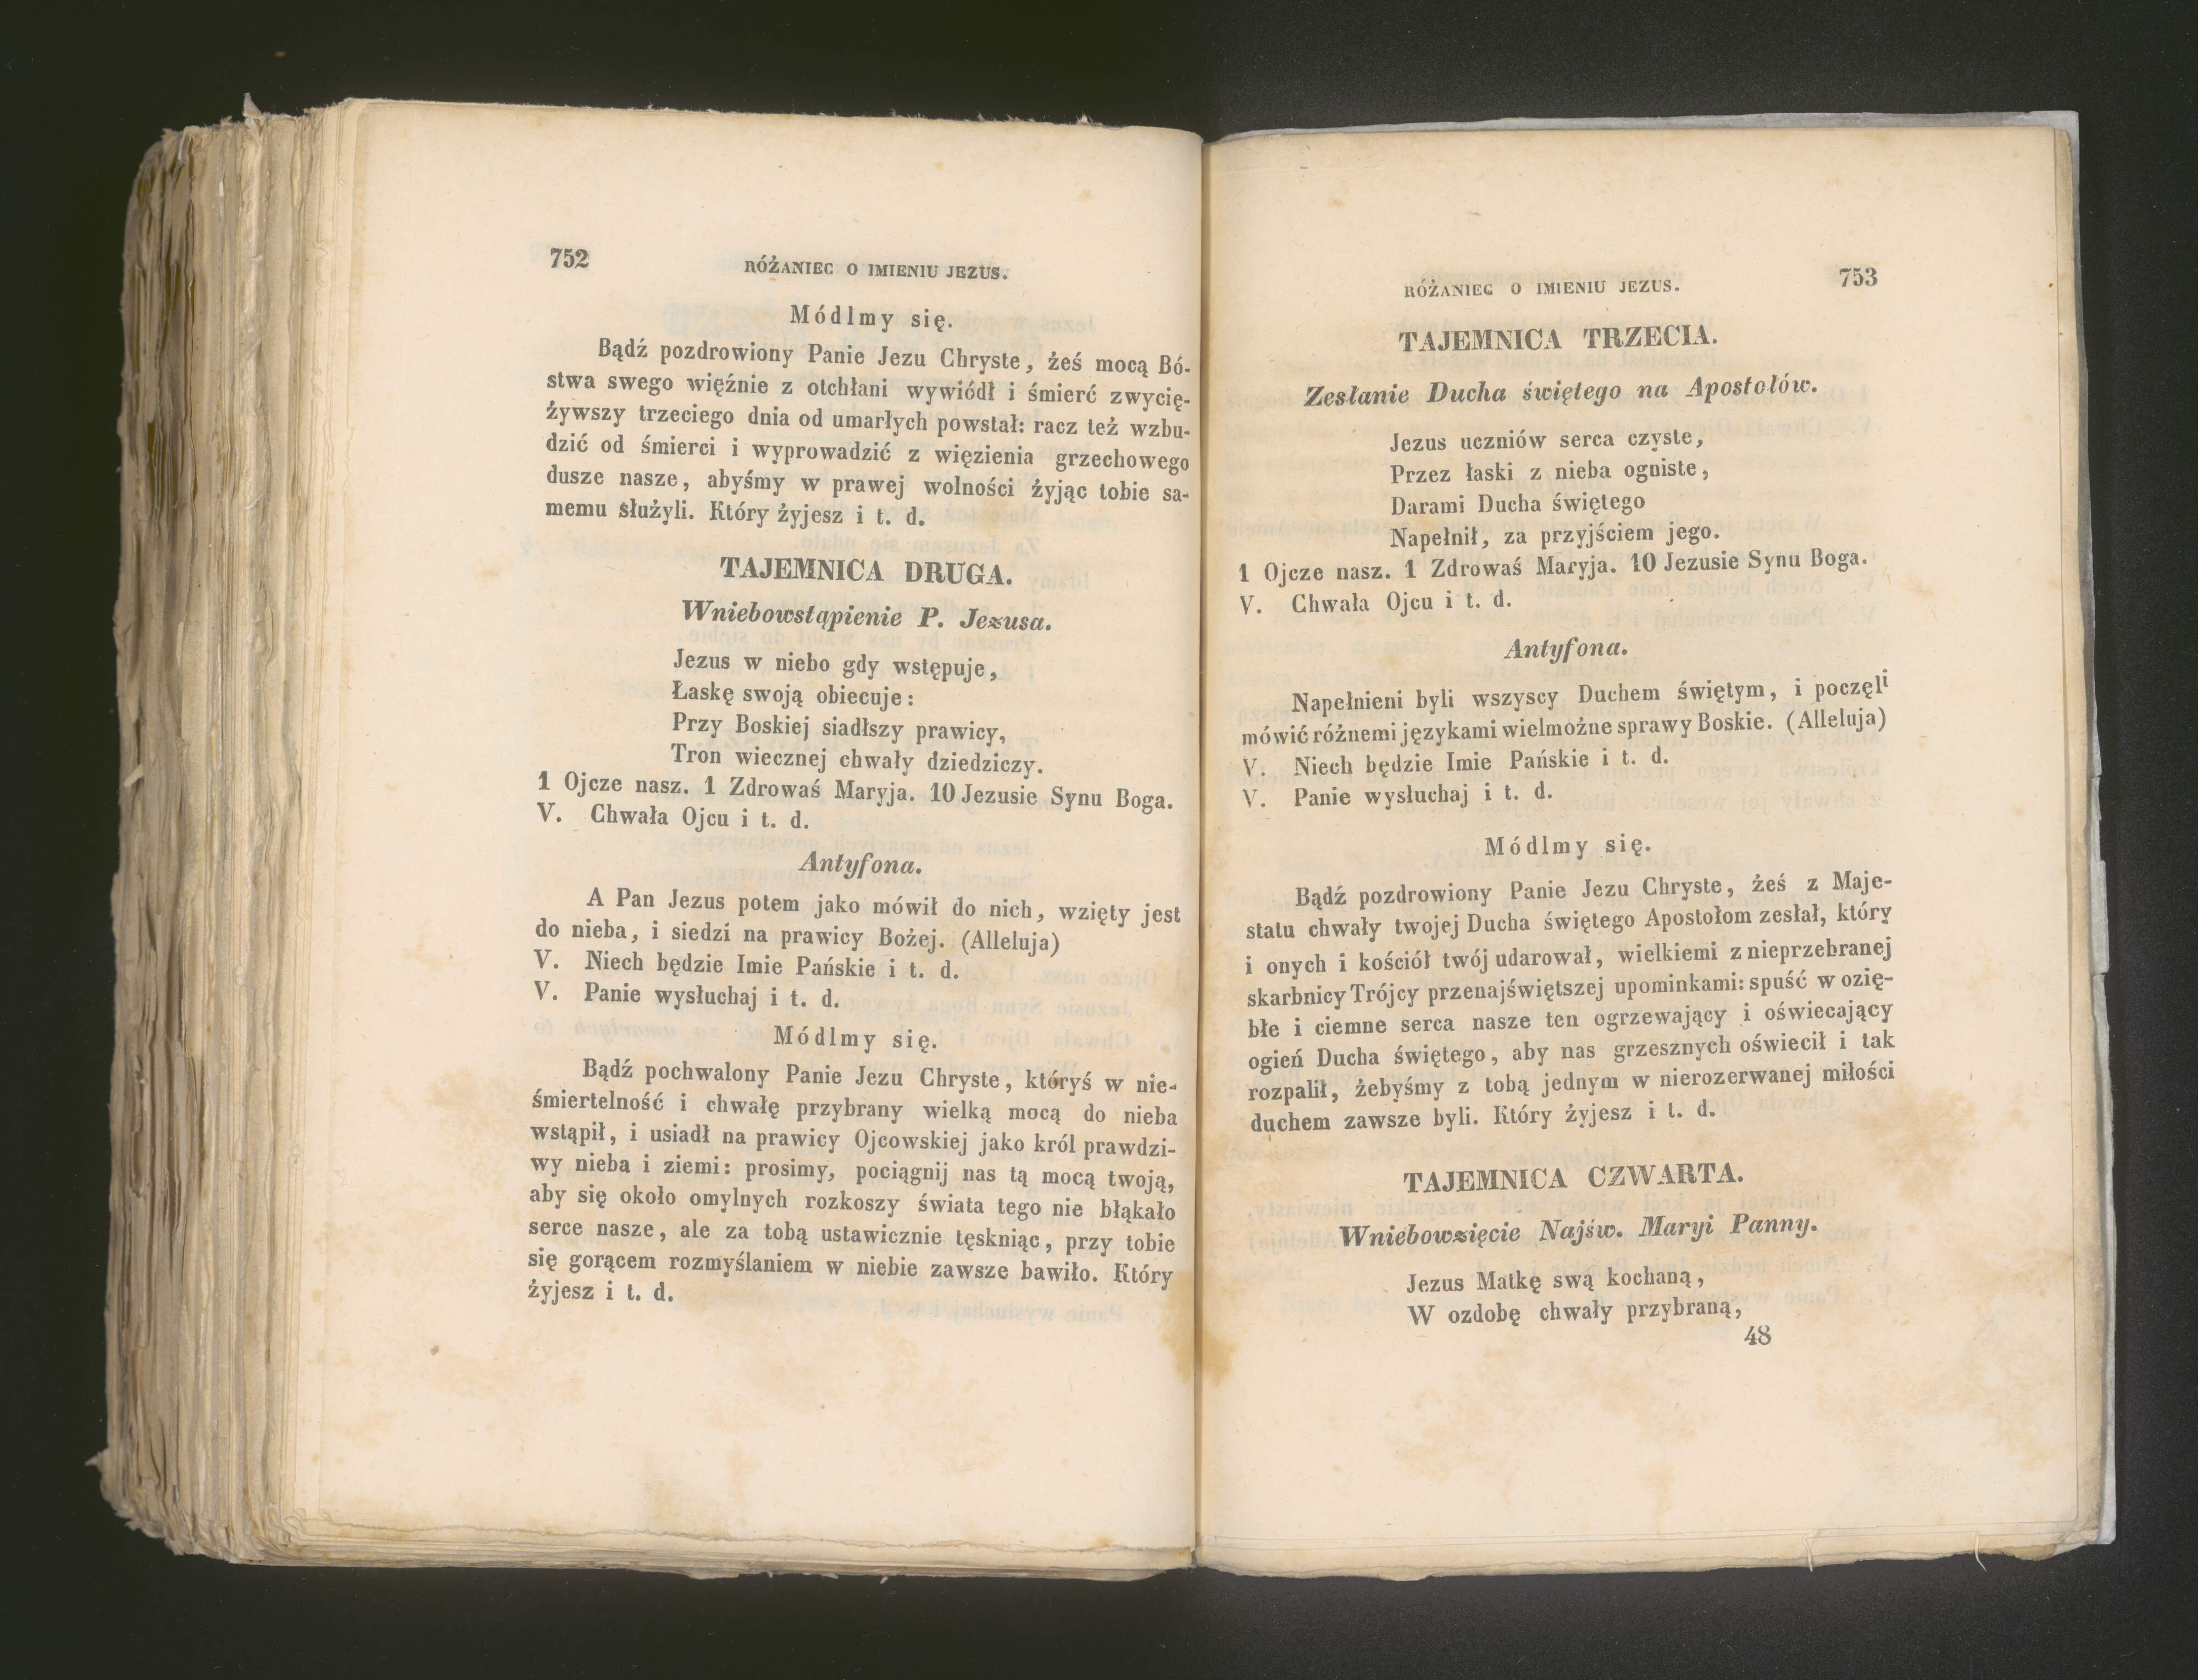 752
RÓŻANIEC O IMIENIU JEZUS.
Módlmy się.
Bądź pozdrowiony Panie Jezu Chryste, żeś mocą Bó-
stwa swego więźnie z otchłani wywiódł i śmierć zwycię-
żywszy trzeciego dnia od umarłych powstał: racz też wzbu-
dzić od śmierci i wyprowadzić z więzienia grzechowego
dusze nasze, abyśmy w prawej wolności żyjąc tobie sa-
memu służyli. Który żyjesz i t. d.
TAJEMNICA DRUGA.
Wniebowstąpienie P. Jezusa.
Jezus w niebo gdy wstępuje,
Łaskę swoją obiecuje:
Przy Boskiej siadłszy prawicy,
Tron wiecznej chwały dziedziczy.
1 Ojcze nasz. 1 Zdrowaś Maryja. 10 Jezusie Synu Boga.
V. Chwała Ojcu i t. d.
Antyfona.
A Pan Jezus potem jako mówił do nich, wzięty jest
do nieba, i siedzi na prawicy Bożej. (Alleluja)
V. Niech będzie Imie Pańskie i t. d.
V. Panie wysłuchaj i t. d.
Módlmy się.
Bądź pochwalony Panie Jezu Chryste, któryś w nie-
śmiertelność i chwałę przybrany wielką mocą do nieba
wstąpił, i usiadł na prawicy Ojcowskiej jako król prawdzi-
wy nieba i ziemi: prosimy, pociągnij nas tą mocą twoją,
aby się około omylnych rozkoszy świata tego nie błąkało
serce nasze, ale za tobą ustawicznie tęskniąc, przy tobie
się gorącem rozmyślaniem w niebie zawsze bawiło. Który
żyjesz i t. d.
RÓŻANIEC O IMIENIU JEZUS.
753
TAJEMNICA TRZECIA.
Zesłanie Ducha świętego na Apostołów.
Jezus uczniów serca czyste,
Przez łaski z nieba ogniste,
Darami Ducha świętego
Napełnił, za przyjściem jego.
1 Ojcze nasz. 1 Zdrowaś Maryja. 10 Jezusie Synu Boga.
V. Chwała Ojcu i t. d.
Antyfona.
Napełnieni byli wszyscy Duchem świętym, i poczęli
mówić różnemi językami wielmożne sprawy Boskie. (Alleluja)
V. Niech będzie Imie Pańskie i t. d.
V. Panie wysłuchaj i t. d.
Módlmy się.
Bądź pozdrowiony Panie Jezu Chryste, żeś z Maje-
statu chwały twojej Ducha świętego Apostołom zesłał, który
i onych i kościół twój udarował, wielkiemi z nieprzebranej
skarbnicy Trójcy przenajświętszej upominkami: spuść w ozię-
błe i ciemne serca nasze ten ogrzewający i oświecający
ogień Ducha świętego, aby nas grzesznych oświecił i tak
rozpalił, żebyśmy z tobą jednym w nierozerwanej miłości
duchem zawsze byli. Który żyjesz i t. d.
TAJEMNICA CZWARTA.
Wniebowzięcie Najśw. Maryi Panny.
Jezus Matkę swą kochaną,
W ozdobę chwały przybraną,
48